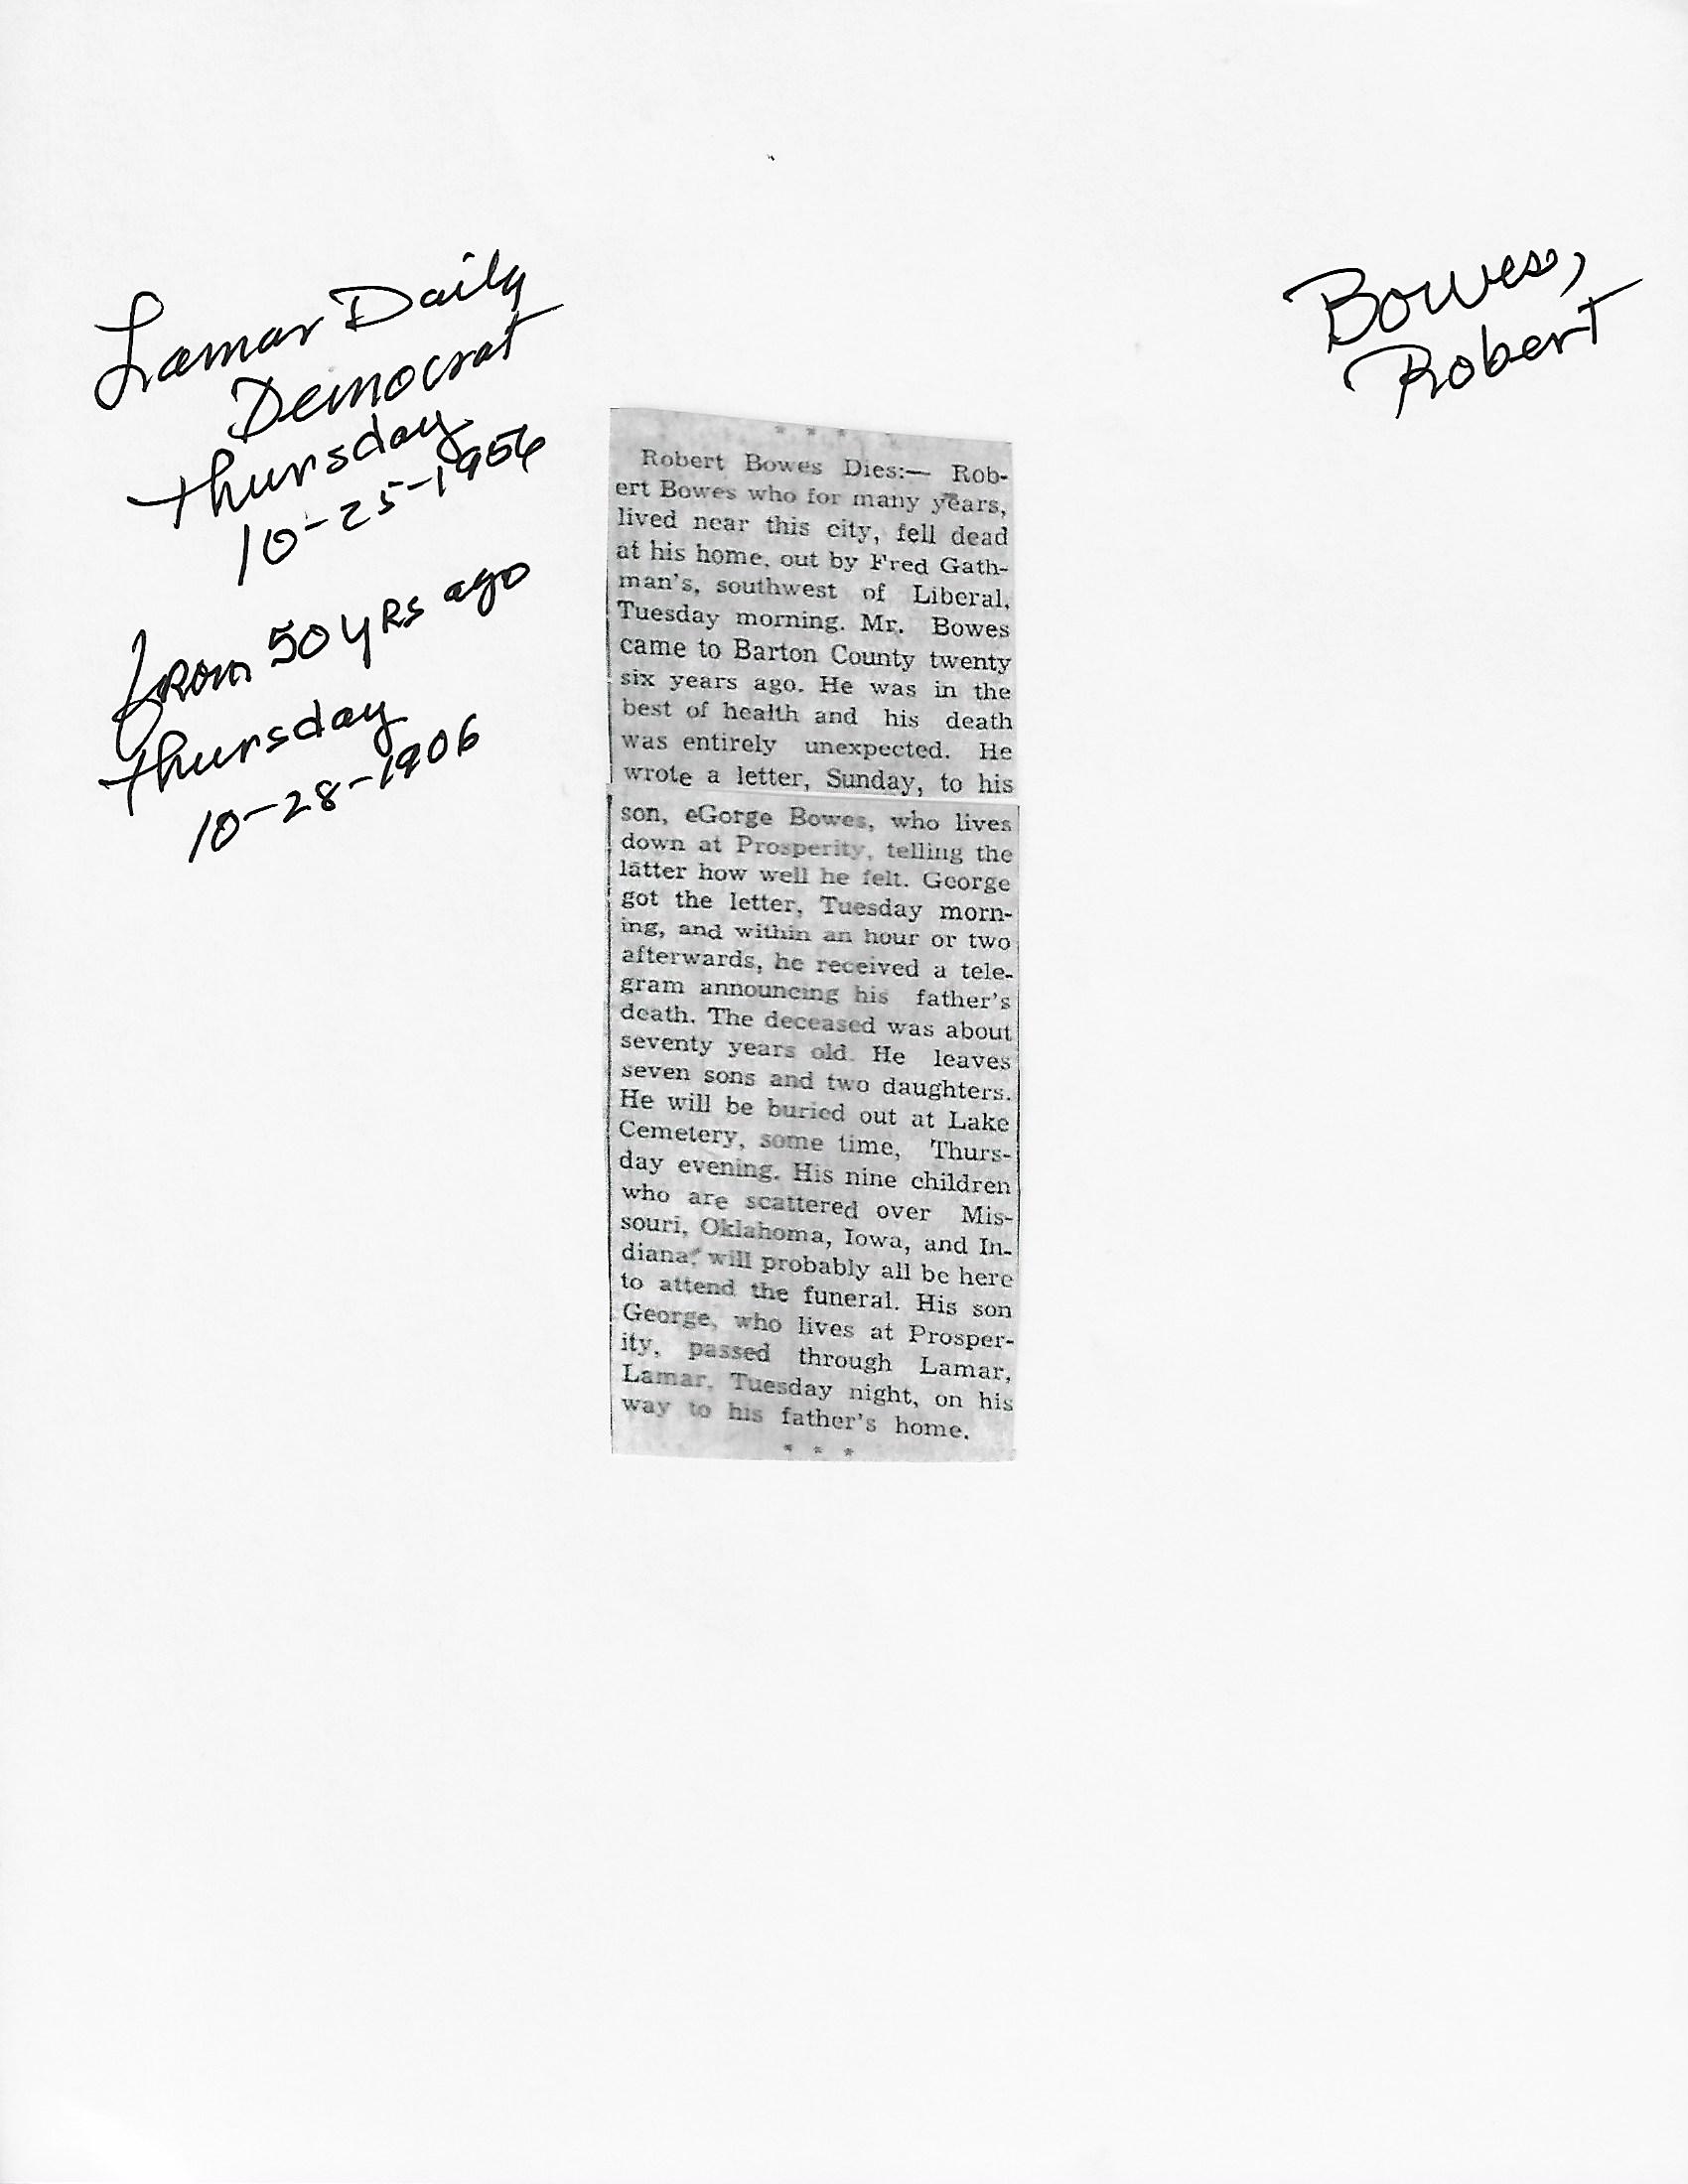 Lamar Daily
Democrat
Thursday
10-25-1956
from 50 yRs ago
Thursday
10-28-1906
Bowes,
Robert
* * *
Robert Bowes Dies:— Rob-
ert Bowes who for many years,
lived near this city, fell dead
at his home, out by Fred Gath-
man's, southwest of Liberal,
Tuesday morning. Mr. Bowes
came to Barton County twenty
six years ago. He was in the
best of health and his death
was entirely unexpected. He
wrote a letter, Sunday, to his
son, eGorge Bowes, who lives
down at Prosperity, telling the
latter how well he felt. George
got the letter, Tuesday morn-
ing, and within an hour or two
afterwards, he received a tele-
gram announcing his father's
death. The deceased was about
seventy years old. He leaves
seven sons and two daughters.
He will be buried out at Lake
Cemetery, some time, Thurs-
day evening. His nine children
who are scattered over Mis-
souri, Oklahoma, Iowa, and In-
diana, will probably all be here
to attend the funeral. His son
George, who lives at Prosper-
ity, passed through Lamar,
Lamar, Tuesday night, on his
way to his father's home.
* * *